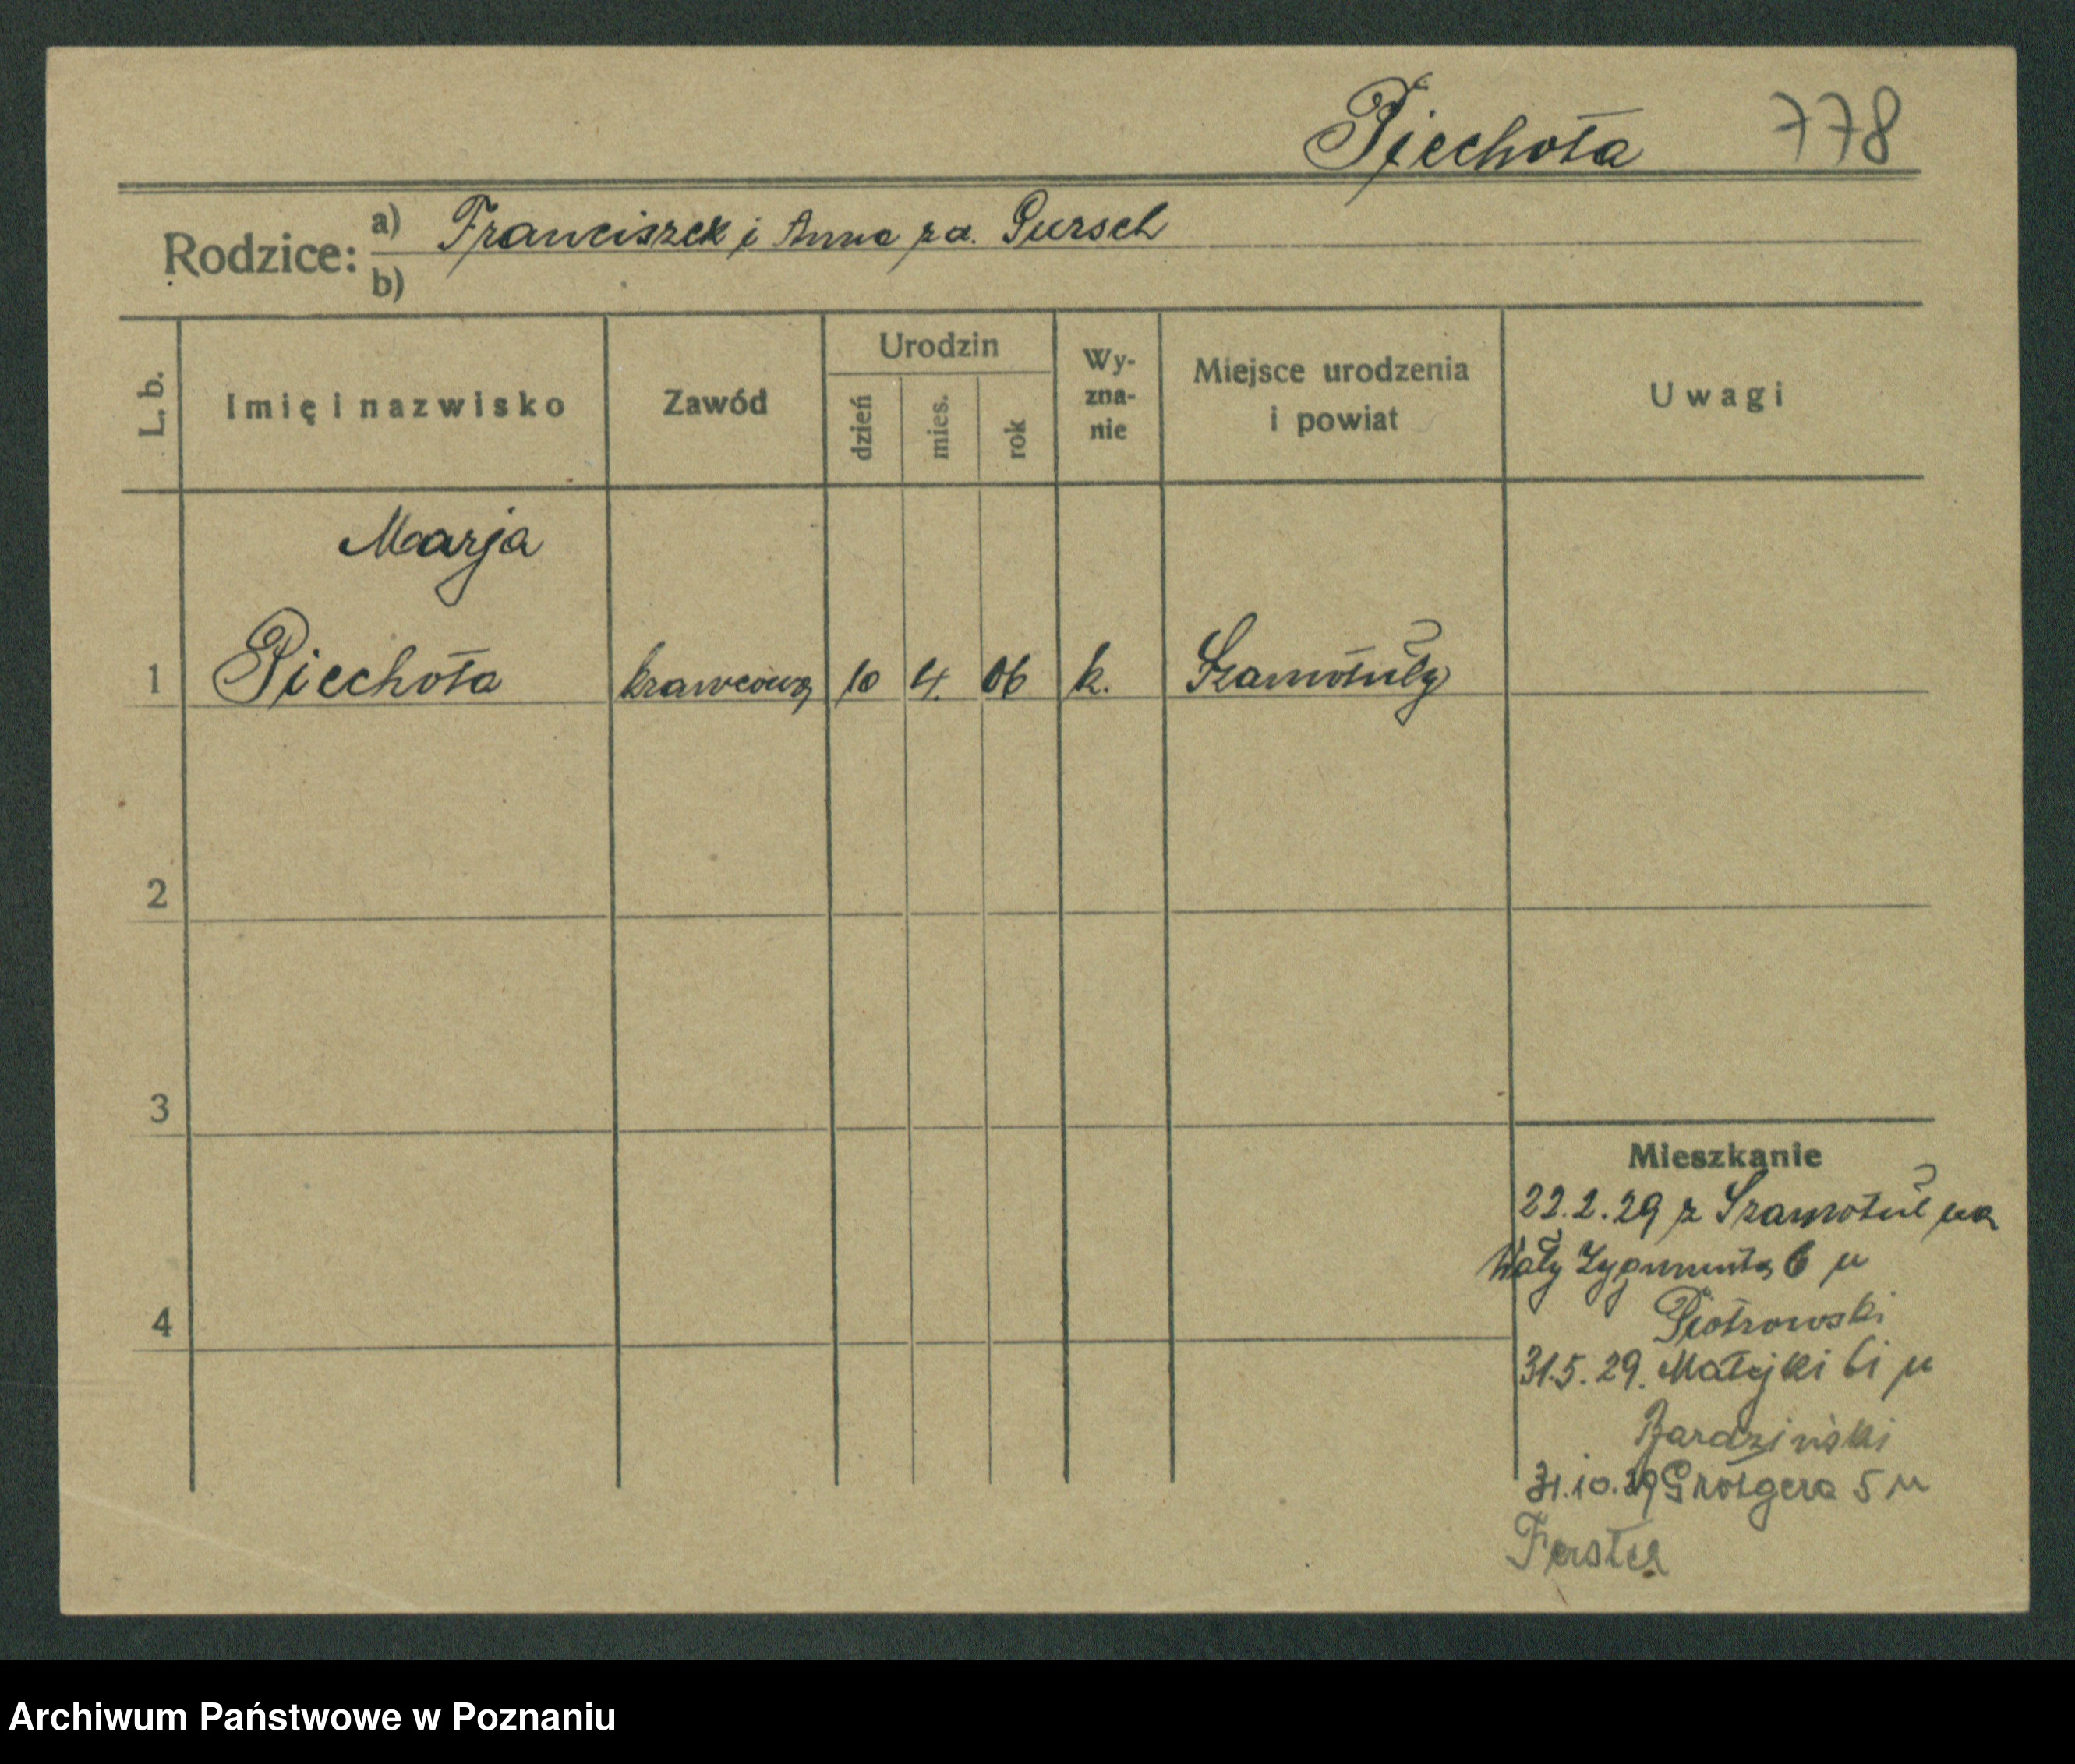 Piechota 778
Rodzice: a) Franciszek i Anna za. Gursch
b)
L. b. Imię i nazwisko Zawód Urodzin dzień mies. rok Wy-zna-nie Miejsce urodzenia i powiat Uwagi
Marja
1 Piechota krawcowa 10 4. 06 k. Szamotuły
2
3
Mieszkanie
22.2.29 z Szamotuł na
Wały Zygmunta 6 u
Piotrowski
4
31.5.29. Matejki 61 u
Bardziński
31.10.29 Grotgera 5 u
Ferster
Archiwum Państwowe w Poznaniu